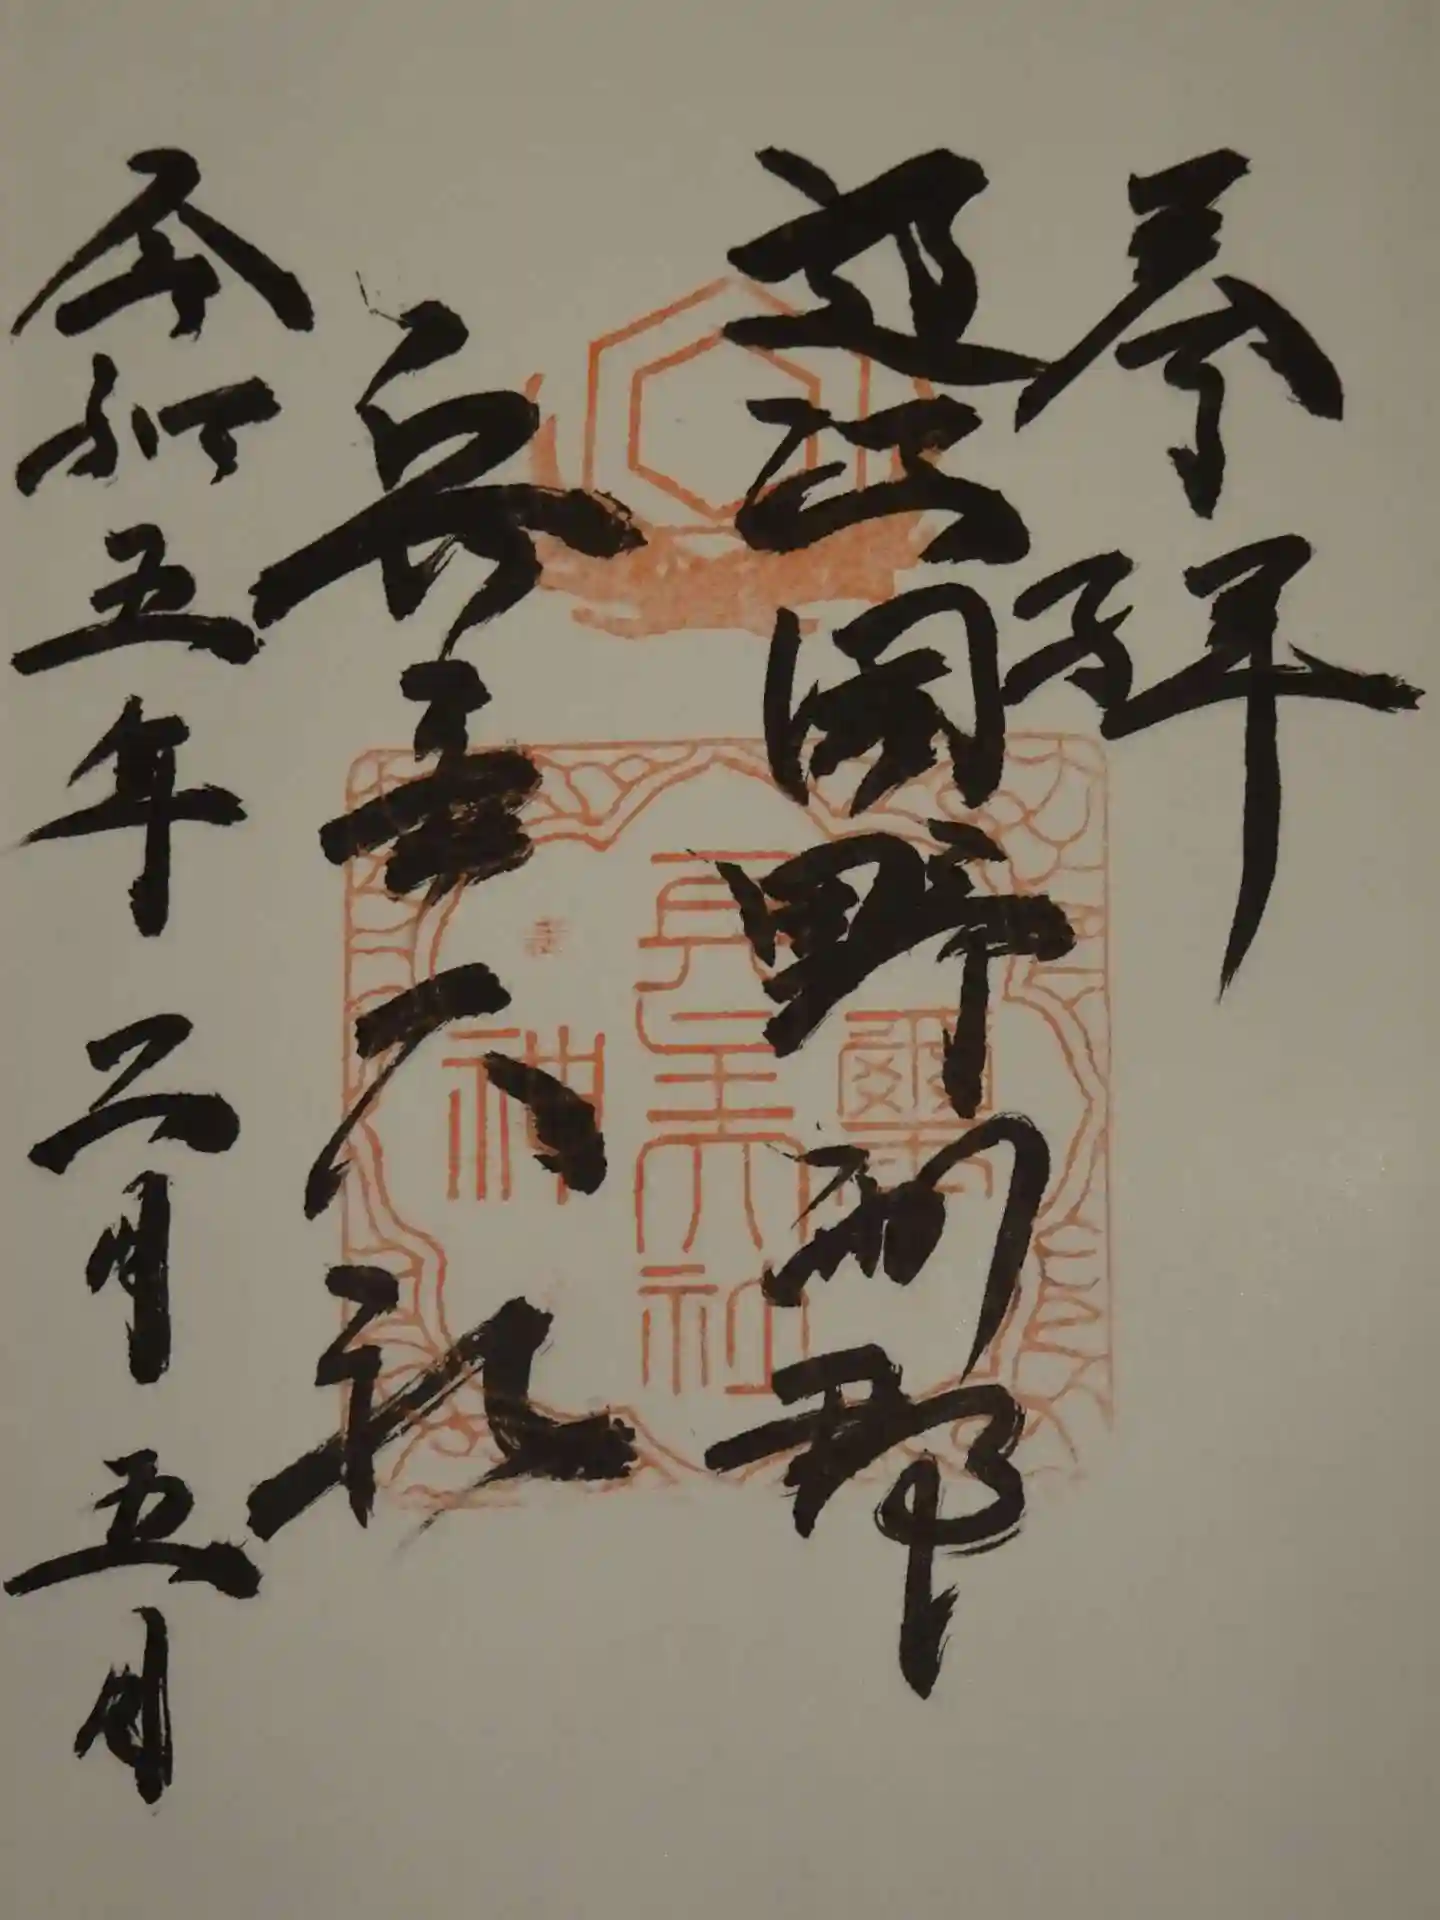 奉拝
近江国野洲郡
兵主大社
令和五年二月五日
兵主大社
神璽